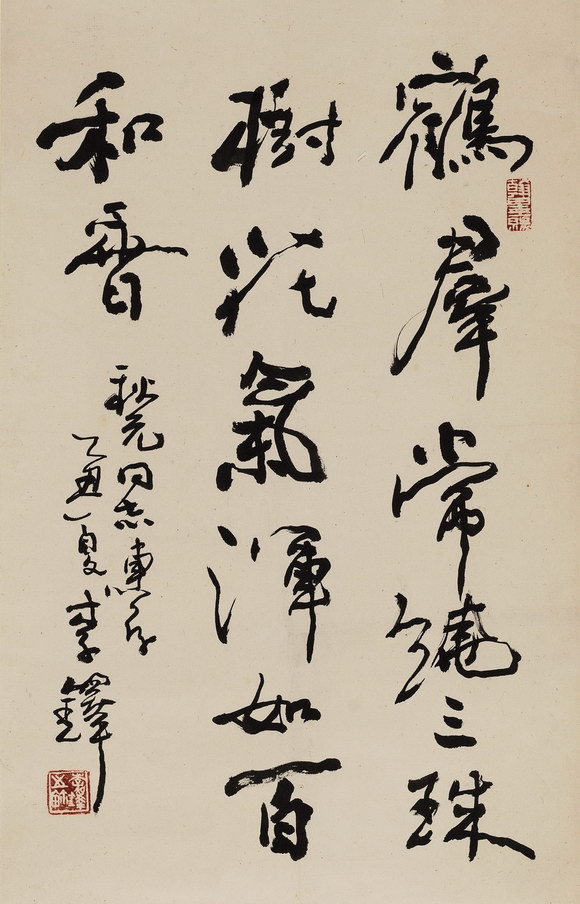 鶴羣常繞三珠
樹花氣渾如百
和香
秋元同志惠存
乙丑夏李鐸